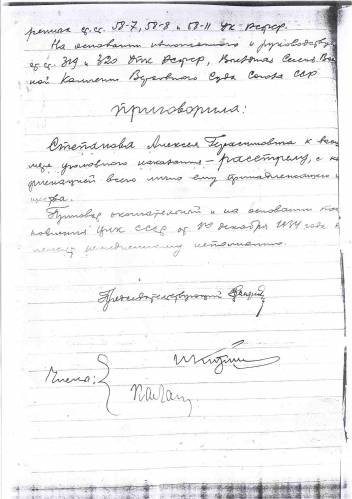 ренных ст.ст. 58-7, 58-8 и 58-11 УК РСФСР.
На основании изложенного и руководствуясь
ст.ст. 319 и 320 УПК РСФСР, Выездная Сессия Во
ной Коллегии Верховного Суда Союза ССР
приговорила:
Степанова Алексея Герасимовича к высш
мере уголовного наказания – расстрелу, с ко
фискацией всего лично ему принадлежащего и
щества.
Приговор окончательный и на основании пос
новления ЦИК СССР от 1го декабря 1934 года
лежит немедленному исполнению.
Председательствующий
Члены: